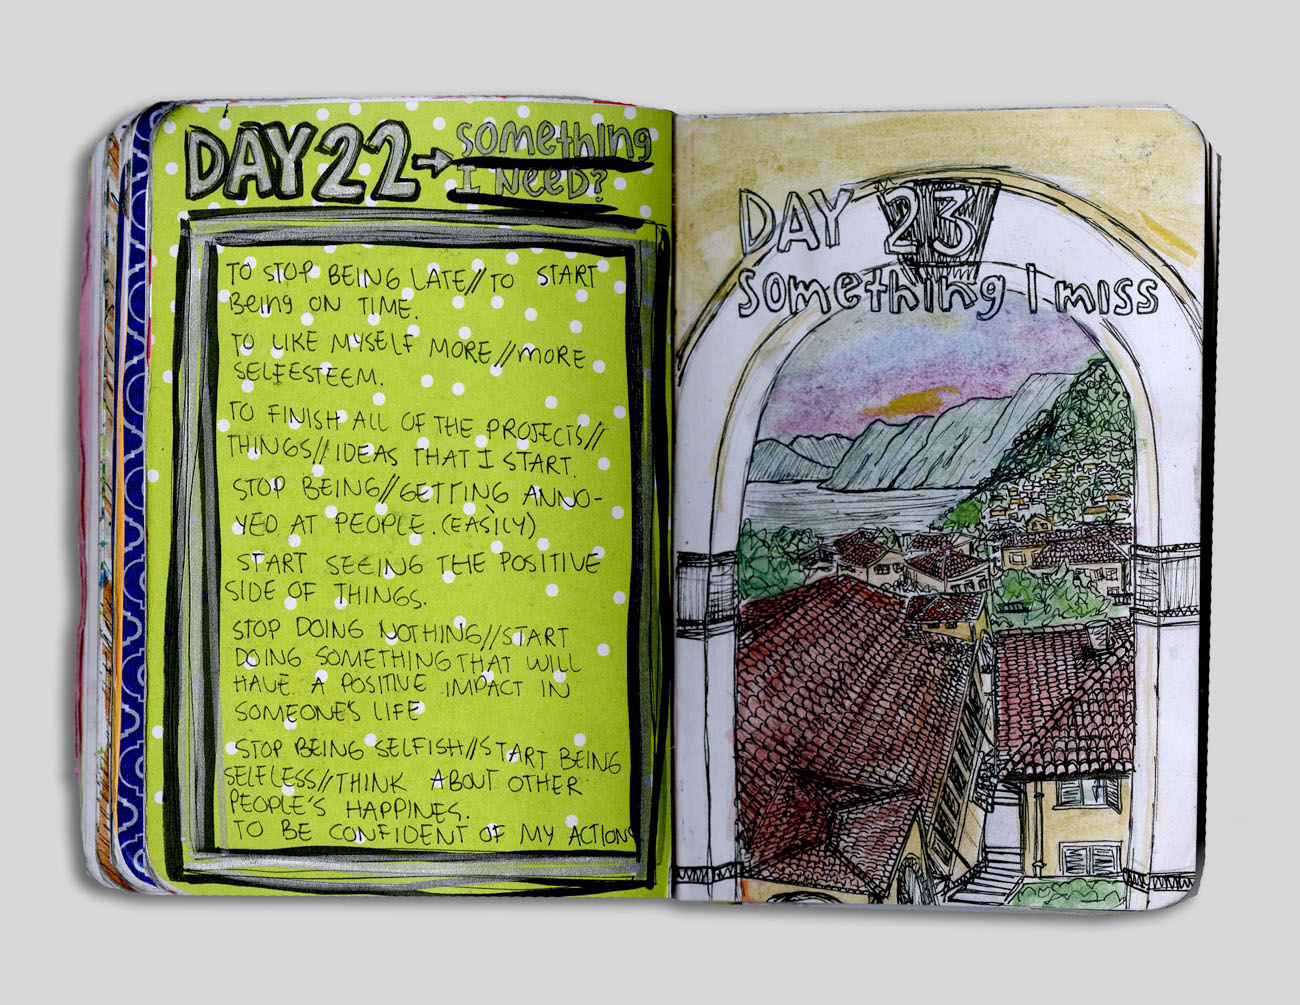 DAY 22 → something
I NEED?
TO STOP BEING LATE//TO START
BEING ON TIME.
TO LIKE MYSELF MORE//MORE
SELFESTEEM.
TO FINISH ALL OF THE PROJECTS//
THINGS//IDEAS THAT I START.
STOP BEING//GETTING ANNO-
YED AT PEOPLE. (EASILY)
START SEEING THE POSITIVE
SIDE OF THINGS.
STOP DOING NOTHING//START
DOING SOMETHING THAT WILL
HAVE A POSITIVE IMPACT IN
SOMEONE'S LIFE
STOP BEING SELFISH//START BEING
SELFLESS//THINK ABOUT OTHER
PEOPLE'S HAPPINES.
TO BE CONFIDENT OF MY ACTIONS
DAY 23
something I miss